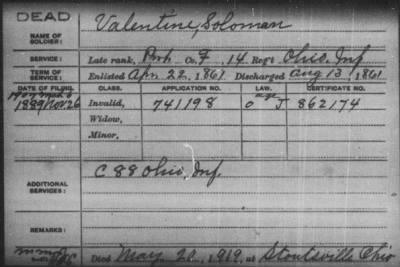 DEAD
Valentine, Soloman
NAME OF SOLDIER:
SERVICE: Late rank, Prvt. Co. F, 14 Reg't Ohio Inf
TERM OF SERVICE: Enlisted Apr 22, 1861 Discharged Aug 13, 1861
DATE OF FILING. CLASS. APPLICATION NO. LAW. CERTIFICATE NO.
1907
1889 Nov 26 Invalid, 741198 age J 862174
Widow,
Minor,
C 88 Ohio, Inf.
ADDITIONAL SERVICES:
REMARKS:
Died May 20, 1919, at Stoutsville Ohio